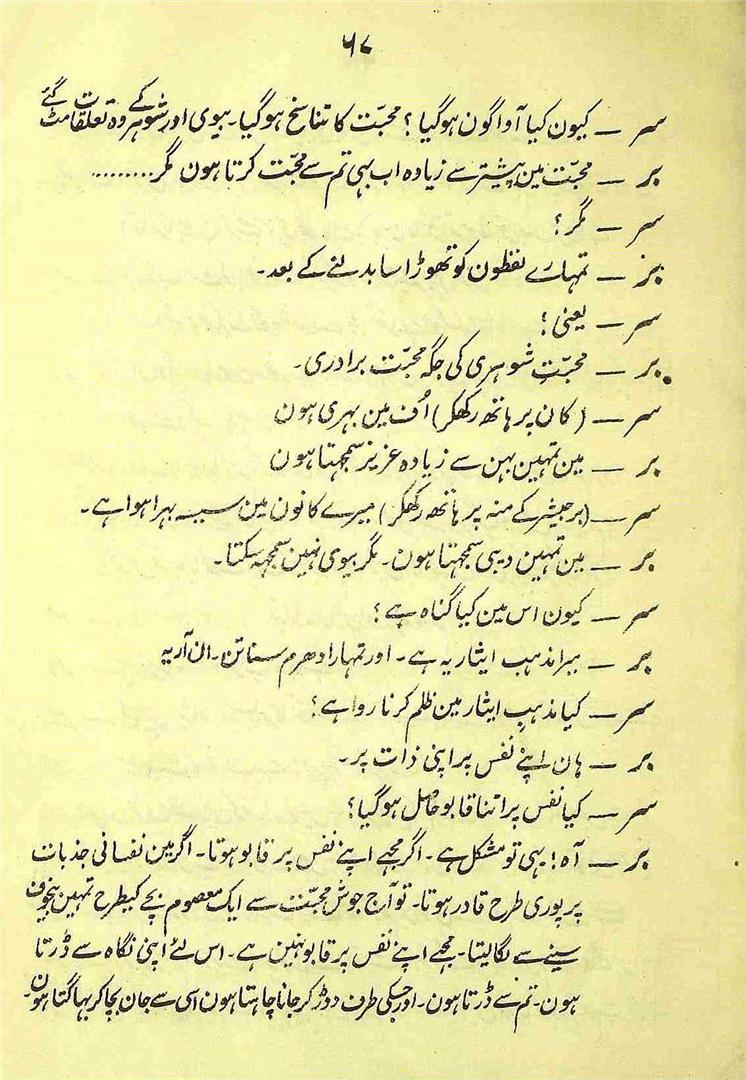 ۶۷
سر — کیون کیا آواگون ہوگیا؟ محبّت کا تناسخ ہوگیا۔ بیوی اور شوہر کے وہ تعلقات مٹ گئے
بر — محبّت مین پیشتر سے زیادہ اب بہی تم سے محبّت کرتا ہون مگر.........
سر — مگر؟
بر — تمہارے لفظون کو تھوڑا سا بدلنے کے بعد۔
سر — یعنی؟
بر — محبّتِ شوہری کی جگہ محبّت برادری۔
سر — (کان پر ہاتھ رکھکر) اُف مین بہری ہون
بر — مین تمہین بہن سے زیادہ عزیز سمجہتا ہون
سر — (برجیشر کے منہ پر ہاتھ رکھکر) میرے کانون مین سیسہ بہرا ہوا ہے۔
بر — مین تمہین دیبی سمجہتا ہون۔ مگر بیوی نہین سمجہہ سکتا۔
سر — کیون اس مین کیا گناہ ہے؟
بر — میرا مذہب ایثاریہ ہے۔ اور تمہارا دھرم سناتن۔ ان آریہ
سر — کیا مذہبِ ایثار مین ظلم کرنا روا ہے؟
بر — ہان اپنے نفس پر اپنی ذات پر۔
سر — کیا نفس پر اتنا قابو حاصل ہوگیا؟
بر — آہ! یہی تو مشکل ہے۔ اگر مجہے اپنے نفس پر قابو ہوتا۔ اگر مین نفسانی جذبات
پر پوری طرح قادر ہوتا۔ تو آج جوش محبّت سے ایک معصوم بچے کیطرح تمہین بیخوف
سینے سے لگا لیتا۔ مجہے اپنے نفس پر قابو نہین ہے۔ اس لئے اپنی نگاہ سے ڈرتا
ہون۔ تم سے ڈرتا ہون۔ اور جسکی طرف دوڑ کر جانا چاہتا ہون اسی سے جان بچا کر بہاگتا ہون۔